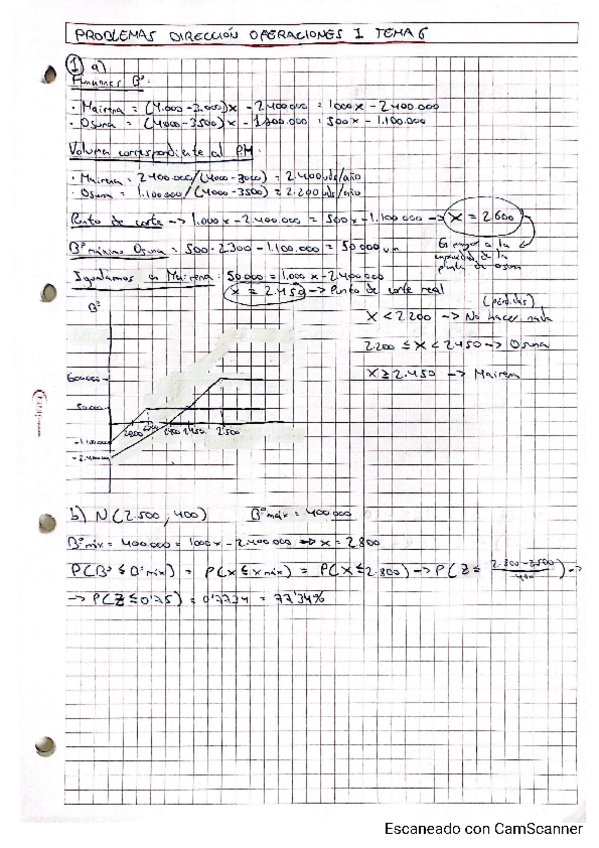 PROBLEMAS DIRECCIÓN OPERACIONES I TEMA 6
① a)
Funciones Bº:
· Mairena = (4.000-3.000)x - 2.400.000 = 1000x - 2.400.000
· Osuna = (4000-3500)x - 1.100.000 = 500x - 1.100.000
Volumen correspondiente al PM:
· Mairena: 2.400.000/(4000-3000) = 2.400 uds/año
· Osuna = 1.100.000/(4000-3500) = 2.200 uds/año
Punto de corte -> 1.000x - 2.400.000 = 500x - 1.100.000 -> x = 2.600
Es mayor a la
capacidad de la
planta de Osuna
Bº máximo Osuna = 500·2.300 - 1.100.000 = 50000 um
Igualamos a Mairena: 50000 = 1.000x - 2.400.000
x = 2.450 -> Punto de corte real
(pérdidas)
x < 2.200 -> No hacer nada
2.200 ≤ x < 2.450 -> Osuna
x ≥ 2.450 -> Mairena
Bº
600.000
50.000
-1.100.000
-2.400.000
2.200 2.400 2.450 2.500
b) N(2.500, 400) Bº máx = 400.000
Bº máx = 400.000 = 1000x - 2.400.000 => x = 2.800
P(Bº ≤ Bº máx) = P(x ≤ x máx) = P(x ≤ 2.800) -> P(Z ≤ 2.800-2500/400) ->
-> P(Z ≤ 0'75) = 0'7734 = 77'34%
Escaneado con CamScanner